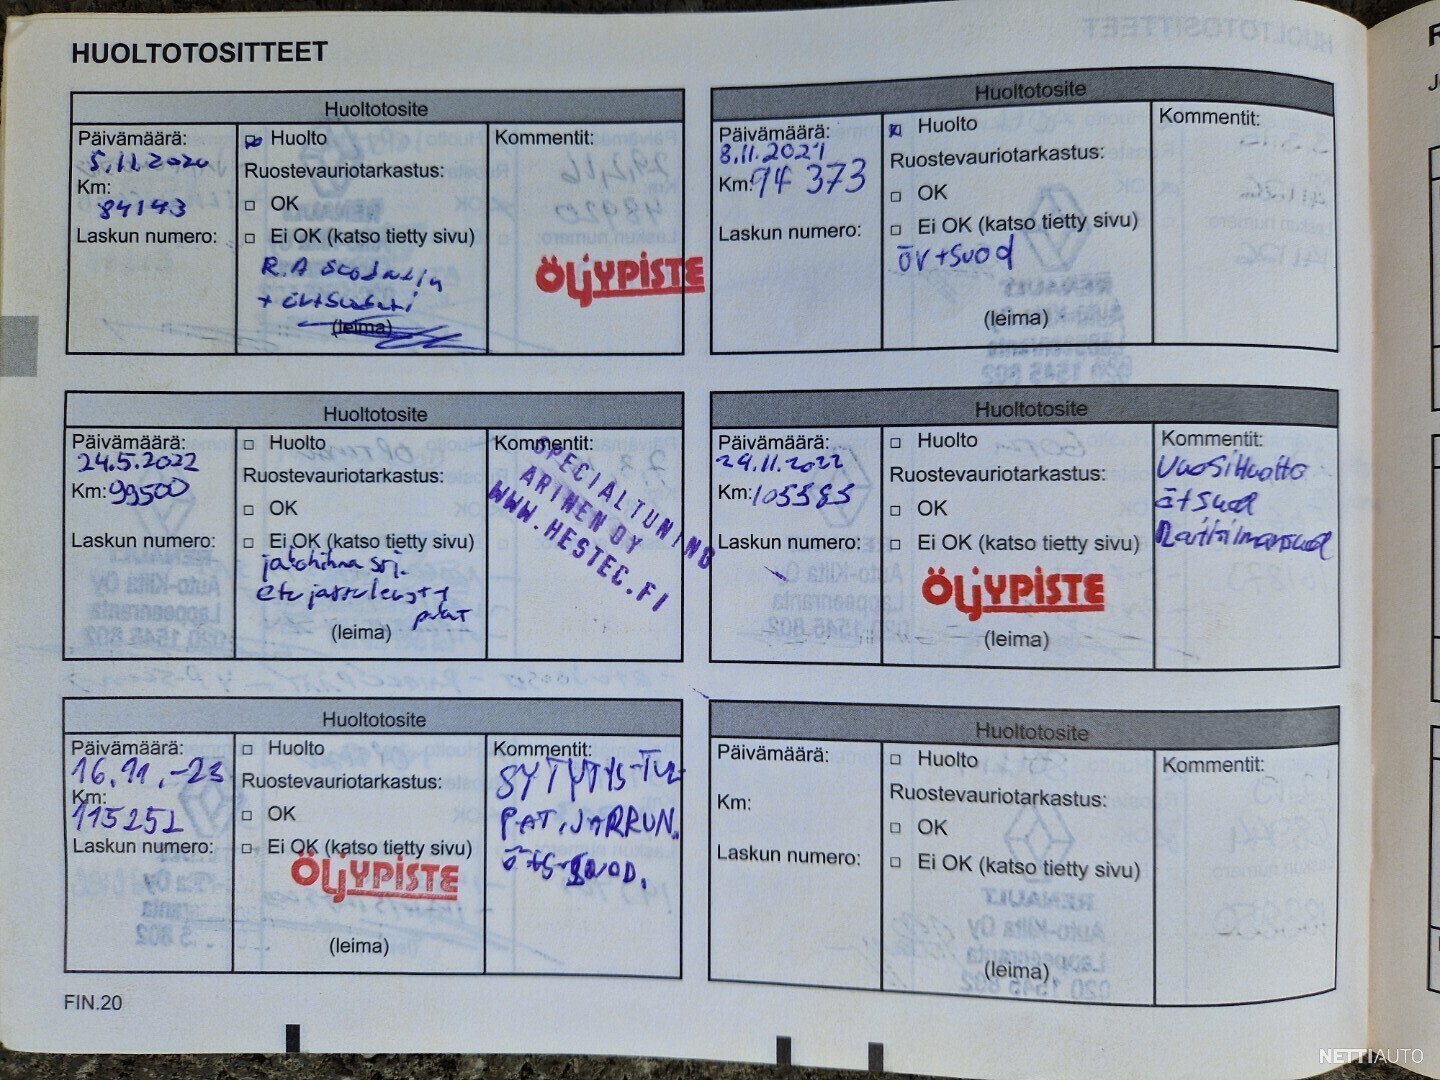 HUOLTOTOSITTEET
Huoltotosite
Päivämäärä:
5.11.2020
Km:
84143
Laskun numero:
Huolto
Ruostevauriotarkastus:
OK
Ei OK (katso tietty sivu)
R.A
(leima)
Kommentit:
ÖLJYPISTE
Huoltotosite
Päivämäärä:
8.11.2021
Km: 94 373
Laskun numero:
Huolto
Ruostevauriotarkastus:
OK
Ei OK (katso tietty sivu)
öv+suod
(leima)
Kommentit:
Huoltotosite
Päivämäärä:
24.5.2022
Km: 99500
Laskun numero:
Huolto
Ruostevauriotarkastus:
OK
Ei OK (katso tietty sivu)
jakohihna srj.
(leima)
Kommentit:
SPECIALTUNING
ARINEN OY
WWW.HESTEC.FI
Huoltotosite
Päivämäärä:
29.11.2022
Km: 105585
Laskun numero:
Huolto
Ruostevauriotarkastus:
OK
Ei OK (katso tietty sivu)
ÖLJYPISTE
(leima)
Kommentit:
Vuosihuolto
ö+suod
Raitisilmansuod
Huoltotosite
Päivämäärä:
16.11.-23
Km:
115252
Laskun numero:
Huolto
Ruostevauriotarkastus:
OK
Ei OK (katso tietty sivu)
ÖLJYPISTE
(leima)
Kommentit:
SYTYTYS-TUL-
PAT, JARRUN.
Huoltotosite
Päivämäärä:
Km:
Laskun numero:
Huolto
Ruostevauriotarkastus:
OK
Ei OK (katso tietty sivu)
(leima)
Kommentit:
FIN.20
NETTIAUTO